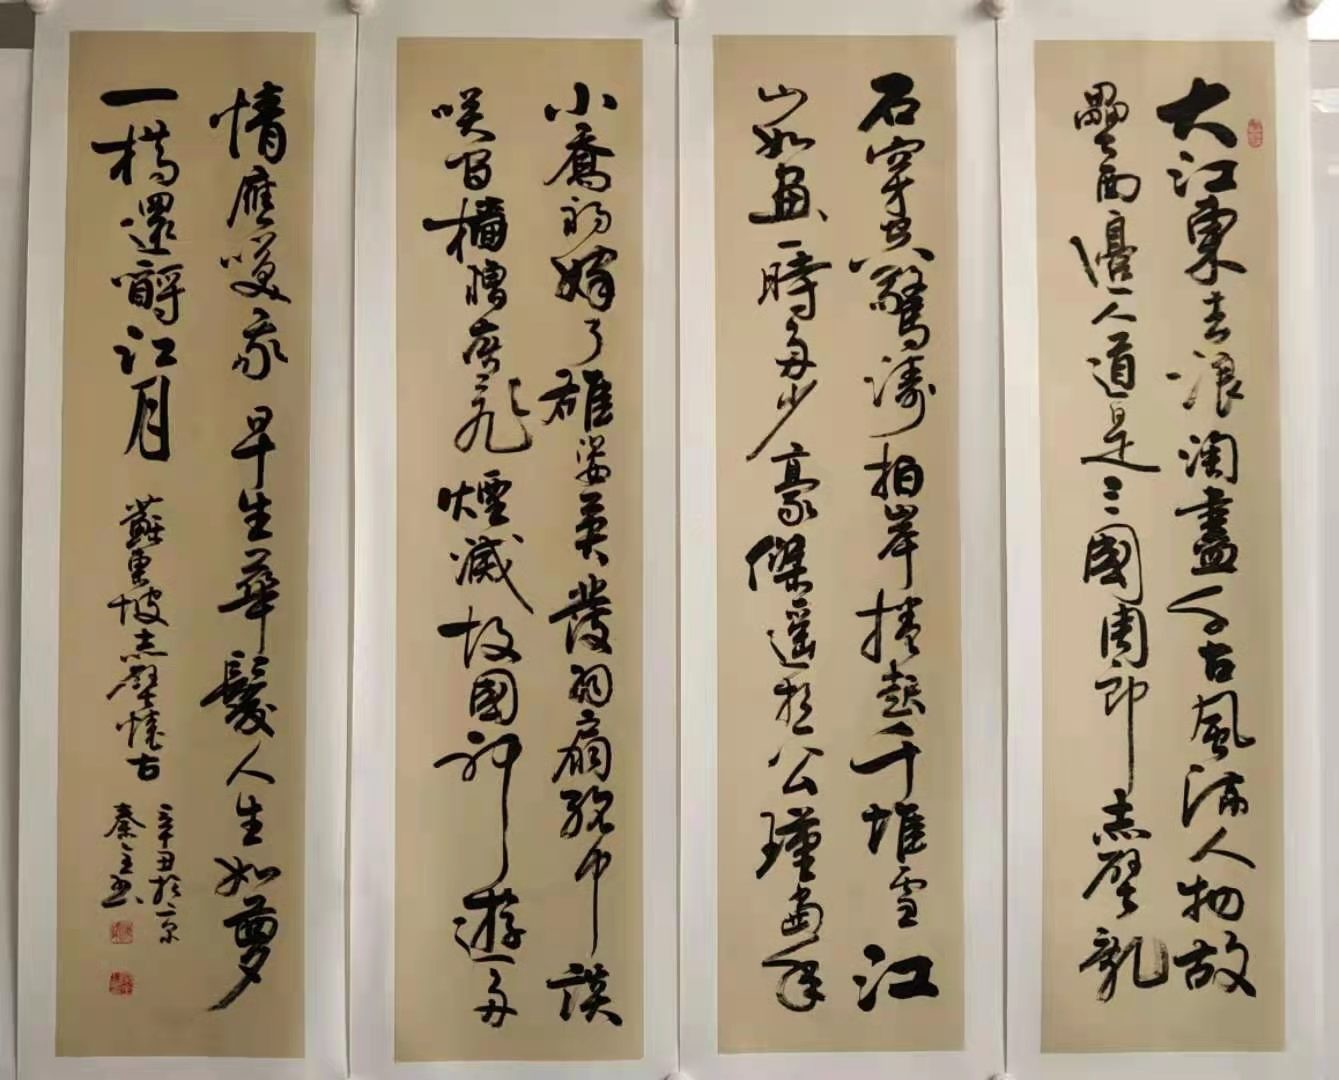 大江東去浪淘盡千古風流人物故
壘西邊人道是三國周郎赤壁亂
石穿空驚濤拍岸捲起千堆雪江
山如畫一時多少豪傑遙想公瑾當年
小喬初嫁了雄姿英發羽扇綸巾談
咲間檣艣灰飛煙滅故國神遊多
情應咲我早生華髮人生如夢
一樽還酹江月 蘇東坡赤壁懷古
辛丑於京
秦立書